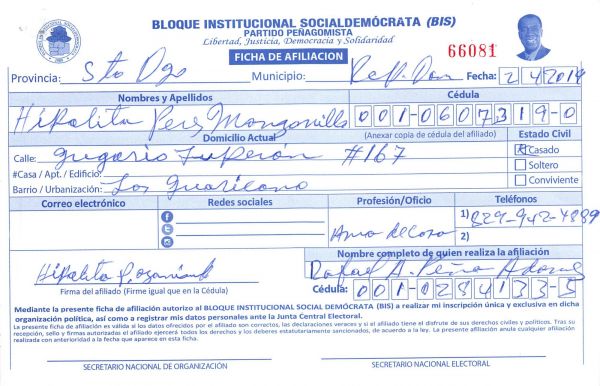 BLOQUE INSTITUCIONAL SOCIALDEMÓCRATA (BIS)
PARTIDO PEÑAGOMISTA
Libertad, Justicia, Democracia y Solidaridad
FICHA DE AFILIACION
66081
Provincia: Sto Dgo Municipio: Rep. Dom Fecha: 2/4/2014
Nombres y Apellidos
Cédula
Hipolita Peres 001-0607319-0
Domicilio Actual
(Anexar copia de cédula del afiliado)
Estado Civil
Calle: Gregorio Luperón #167
Casado
#Casa / Apt. / Edificio:
Soltero
Barrio / Urbanización: Los Guaricano
Conviviente
Correo electrónico
Redes sociales
Profesión/Oficio
Teléfonos
Ama de Casa
1) 829-942-4889
2)
Nombre completo de quien realiza la afiliación
Hipolita P. Rafael A. Peña
Firma del afiliado (Firme igual que en la Cédula)
Cédula: 001-0284133-5
Mediante la presente ficha de afiliación autorizo al BLOQUE INSTITUCIONAL SOCIAL DEMÓCRATA (BIS) a realizar mi inscripción única y exclusiva en dicha
organización política, así como a registrar mis datos personales ante la Junta Central Electoral.
La presente ficha de afiliación es válida si los datos ofrecidos por el afiliado son correctos, las declaraciones veraces y si el afiliado tiene el disfrute de sus derechos civiles y políticos. Tras su
recepción, sello y firmas autorizadas el afiliado ejercerá todos los derechos y los deberes estatutariamente sancionados, de acuerdo a la ley. La presente afiliación anula cualquier afiliación
realizada con anterioridad a la fecha que aparece en esta ficha.
SECRETARIO NACIONAL DE ORGANIZACIÓN
SECRETARIO NACIONAL ELECTORAL